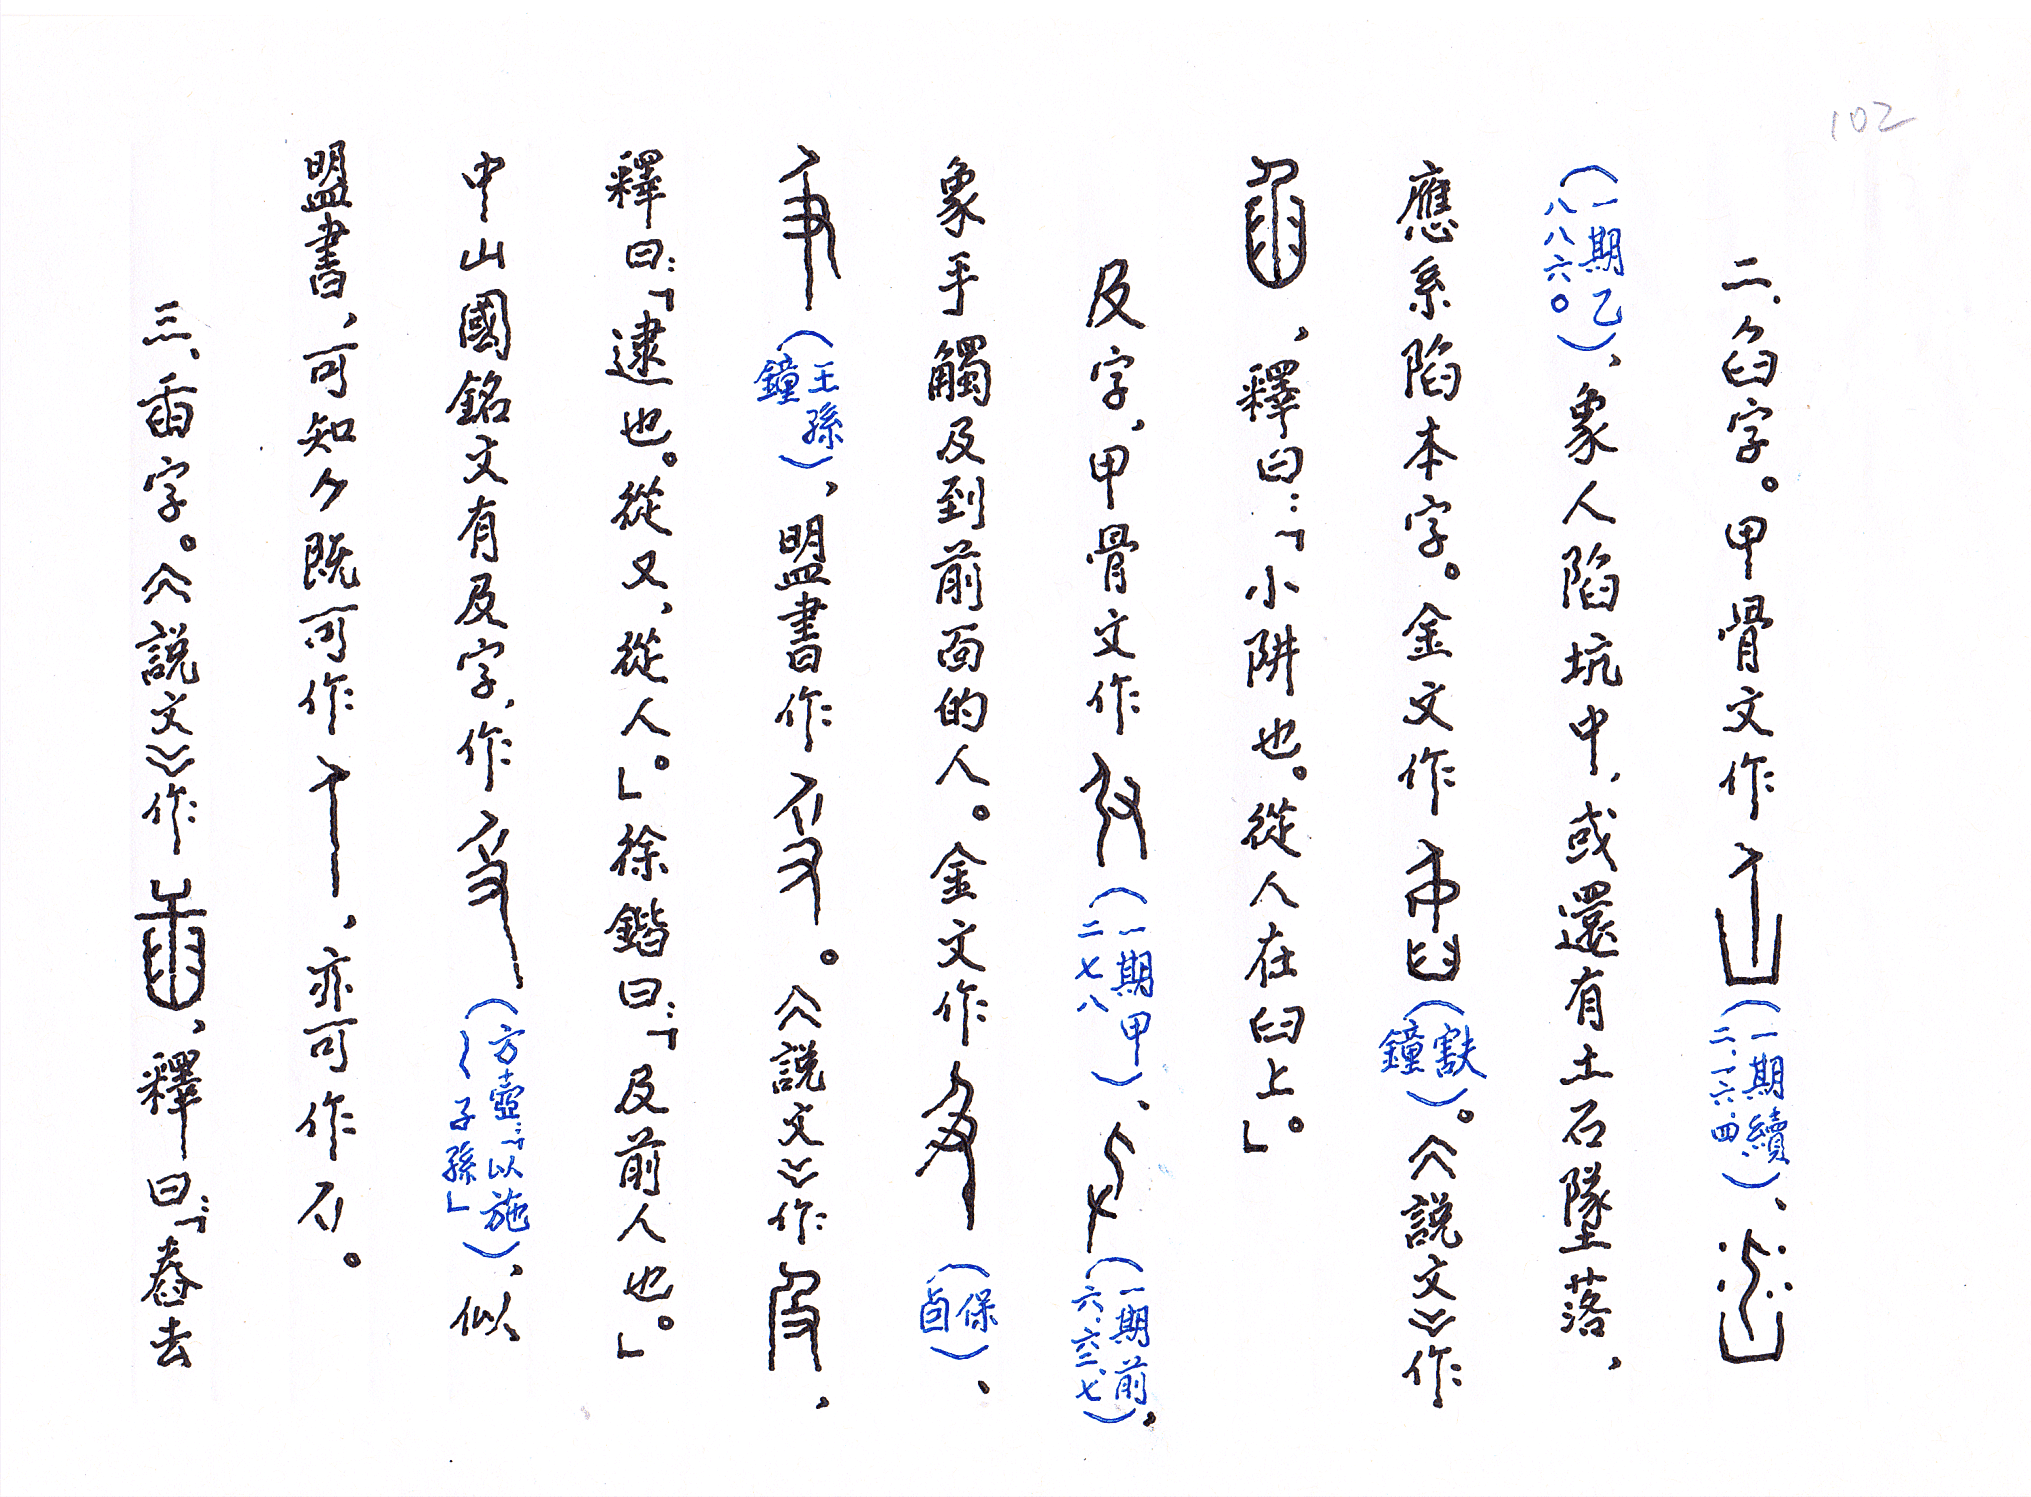 102
二、臽字。甲骨文作(一期續二.一六.四.)、
(一期乙八八六〇)、象人陷坑中,或還有土石墜落,
應系陷本字。金文作(鐘)。《說文》作
,釋曰:「小阱也。從人在臼上。」
及字,甲骨文作(一期甲二七八)、(一期前六.六二.七),
象手觸及到前面的人。金文作(保卣)、
(王孫鐘)、盟書作。《說文》作,
釋曰:「逮也。從又,從人。」徐鍇曰:「及前人也。」
中山國銘文有及字,作(方壺:「以施〜子孫」)、似
盟書,可知ク既可作,亦可作。
三、臿字。《說文》作,釋曰:「舂去